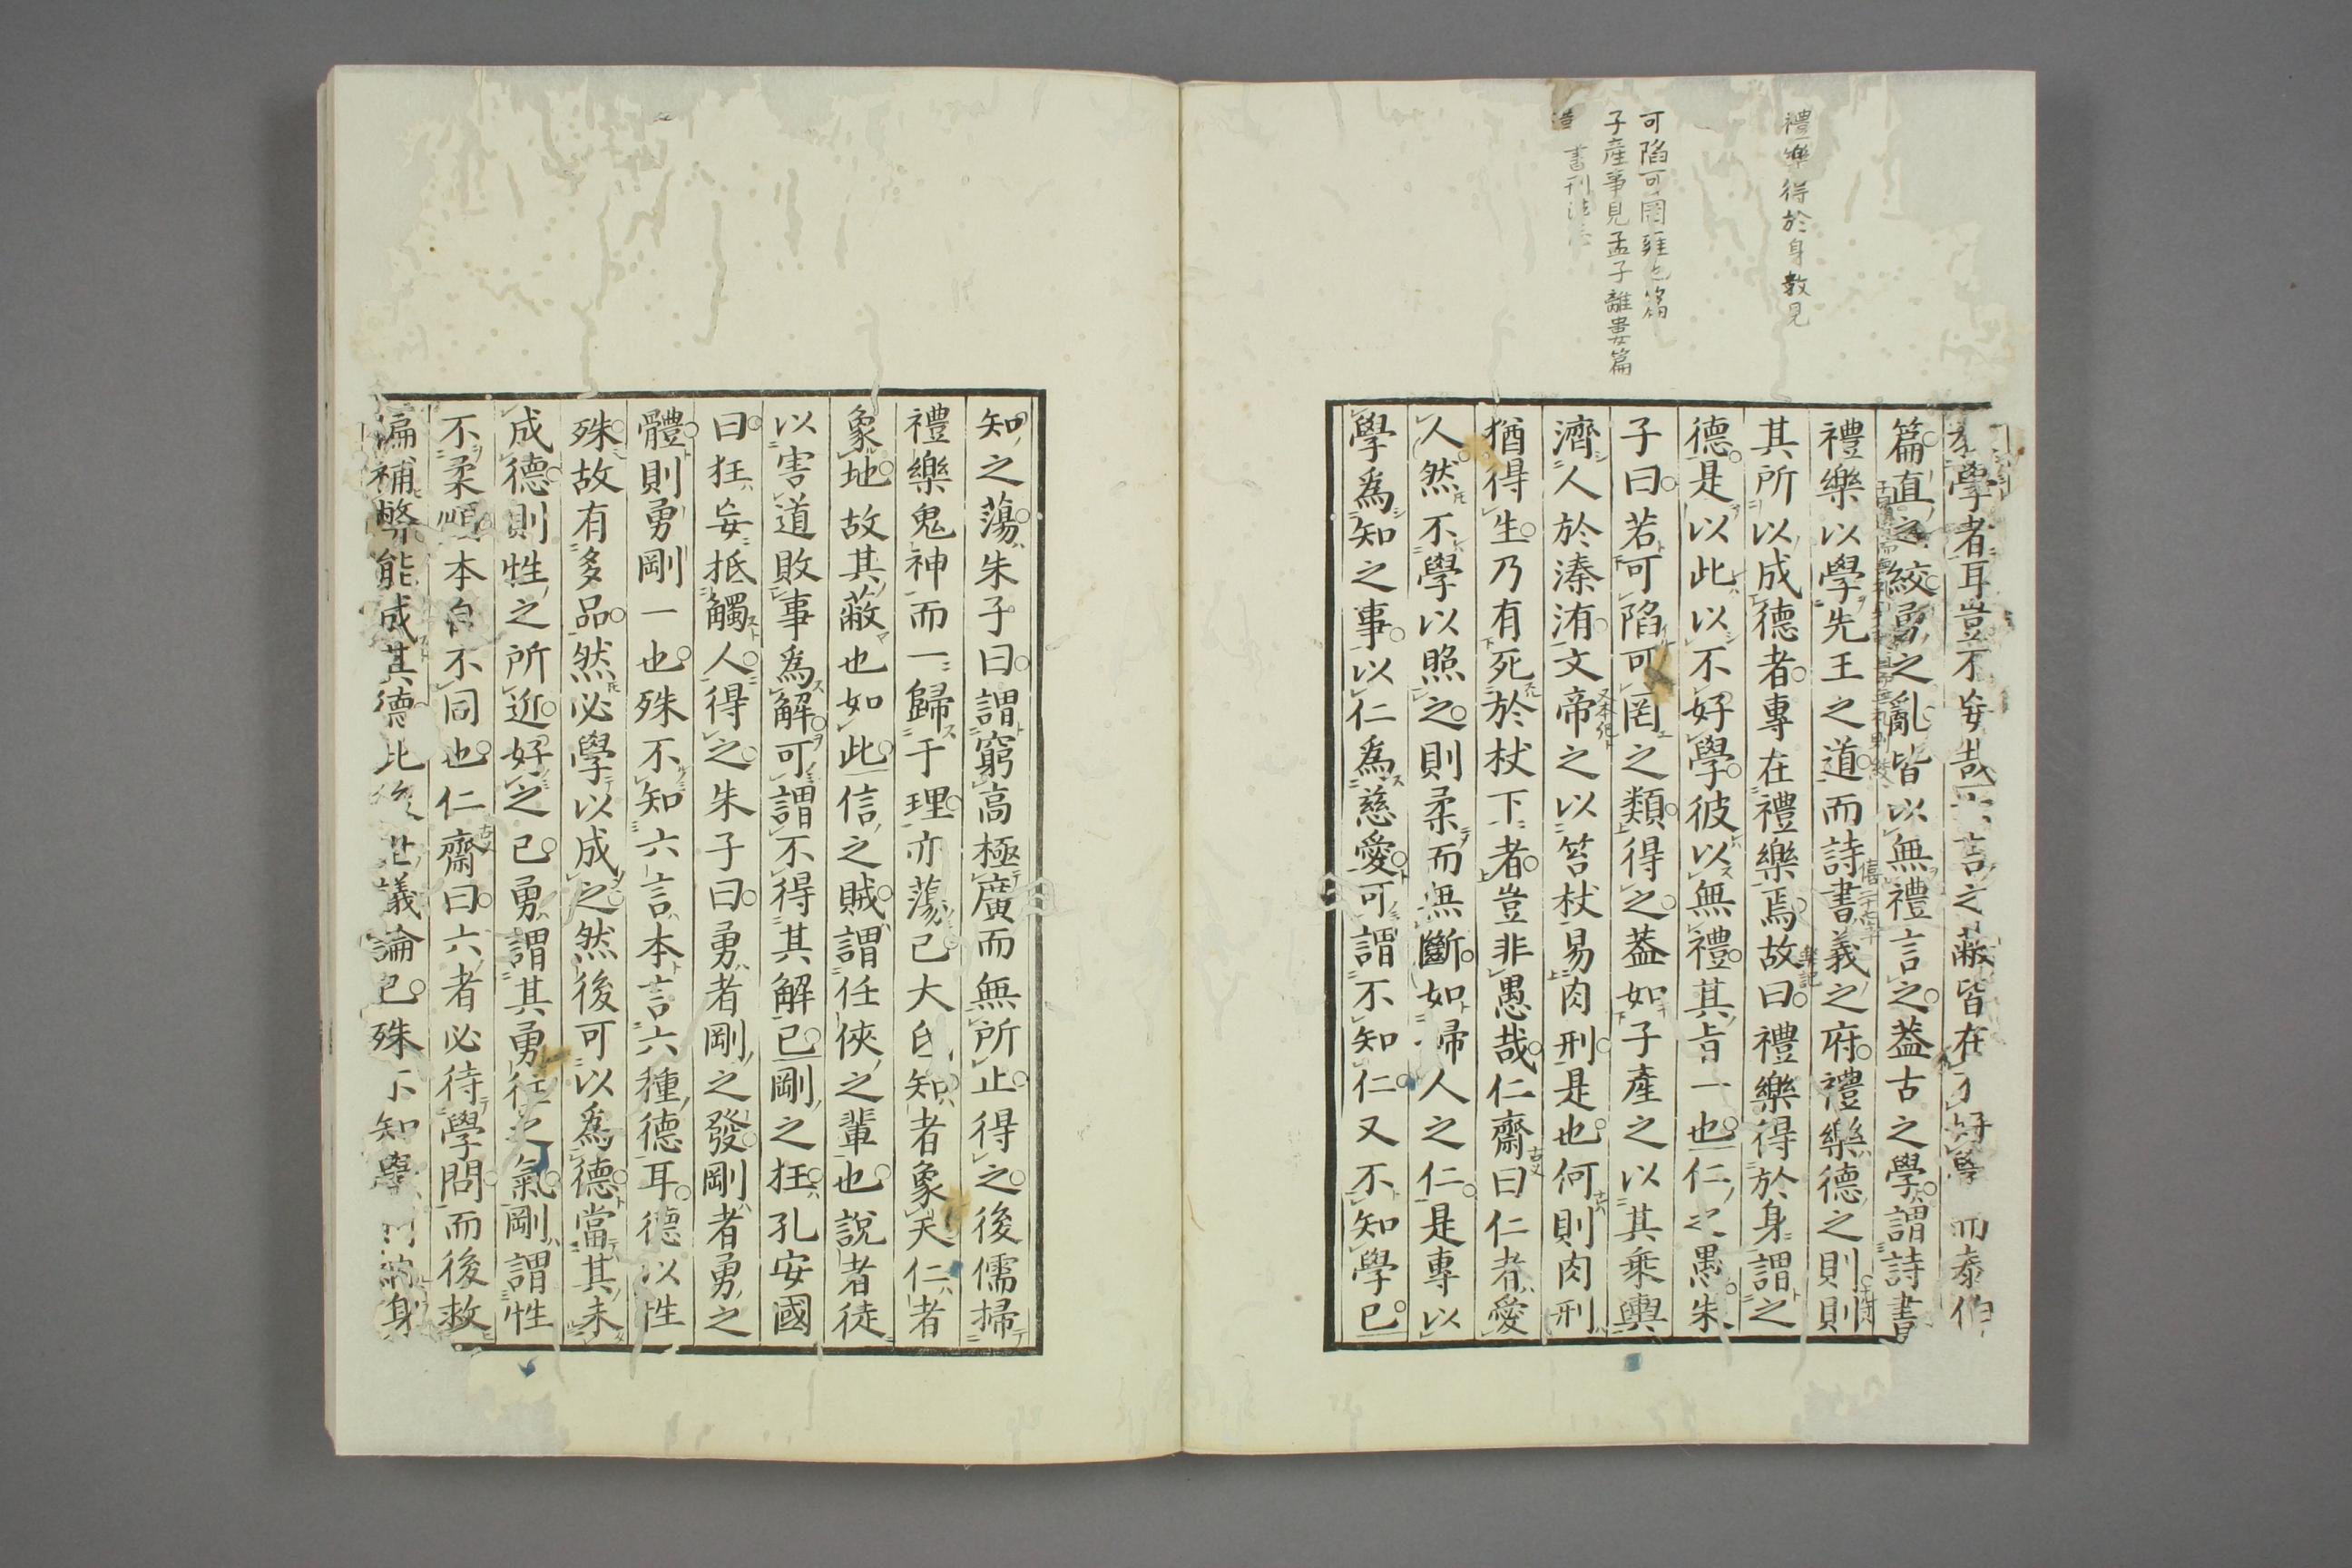 禮樂得於身教見
可陷可罔雍也篇
子產事見孟子離婁篇
書刑法
學者耳豈不妄哉六言之蔽皆在不好學而泰伯
篇直之絞勇之亂皆以無禮言之蓋古之學謂詩書
禮樂以學先王之道而詩書義之府禮樂德之則則
僖二十七年
其所以成德者專在禮樂焉故曰禮樂得於身謂之
樂記
德是以此以不好學彼以無禮其旨一也仁之愚朱
子曰若可陷可罔之類得之蓋如子產之以其乘輿
濟人於溱洧文帝之以笞杖易肉刑是也何則肉刑
猶得生乃有死於杖下者豈非愚哉仁齋曰仁者愛
古義
人然不學以照之則柔而無斷如婦人之仁是專以
學爲知之事以仁爲慈愛可謂不知仁又不知學已
知之蕩朱子曰謂窮高極廣而無所止得之後儒掃
禮樂鬼神而一歸于理亦蕩已大氐知者象天仁者
象地故其蔽也如此信之賊謂任俠之輩也說者徒
以害道敗事爲解可謂不得其解已剛之狂孔安國
曰狂妄抵觸人得之朱子曰勇者剛之發剛者勇之
體則勇剛一也殊不知六言本言六種德耳德以性
殊故有多品然必學以成之然後可以爲德當其未
成德則性之所近好之已勇謂其勇往之氣剛謂性
不柔順本自不同也仁齋曰六者必待學問而後救
古義
偏補弊能成其德此後世議論已殊不知學問納身